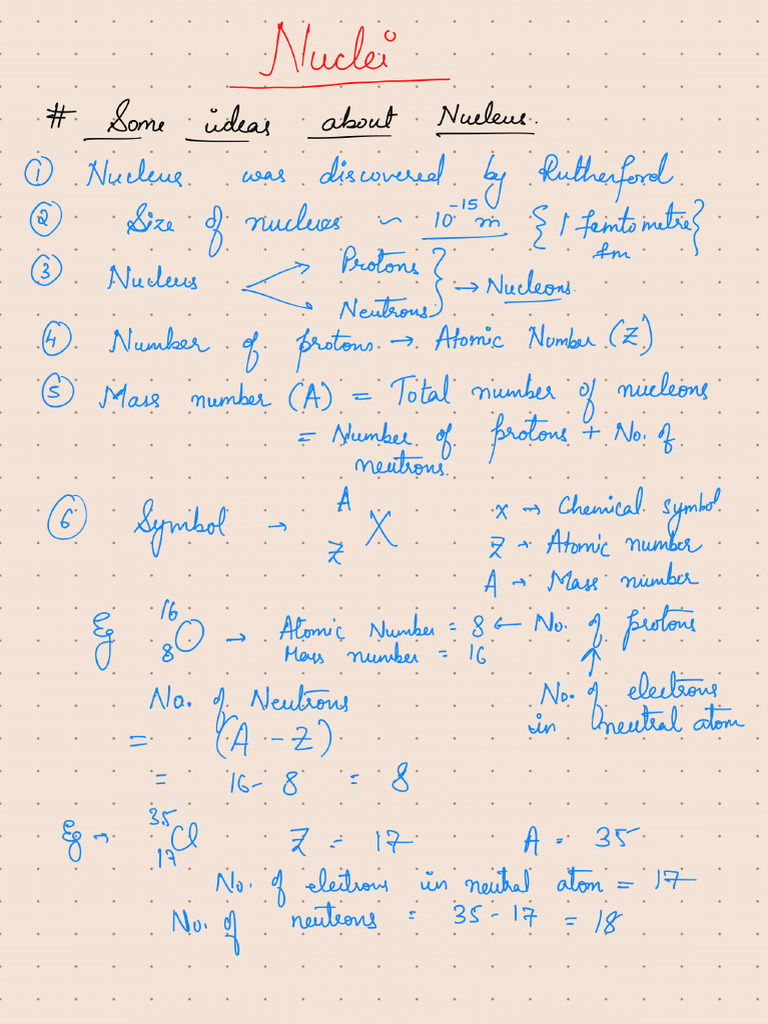 Nuclei
# Some ideas about Nucleus.
① Nucleus was discovered by Rutherford.
② Size of nucleus ~ 10⁻¹⁵ m { 1 femtometre }
fm
③ Nucleus Protons } → Nucleons.
Neutrons
④ Number of protons → Atomic Number (Z)
⑤ Mass number (A) = Total number of nucleons
= Number of protons + No. of
neutrons.
⑥ Symbol → ᴬ_Z X
X → Chemical symbol
Z → Atomic number
A → Mass number
Eg ¹⁶₈O → Atomic Number = 8 ← No. of protons
Mass number = 16
No. of electrons
in neutral atom
No. of Neutrons
= (A - Z)
= 16 - 8 = 8
Eg → ³⁵₁₇Cl Z = 17 A = 35
No. of electrons in neutral atom = 17
No. of neutrons = 35 - 17 = 18